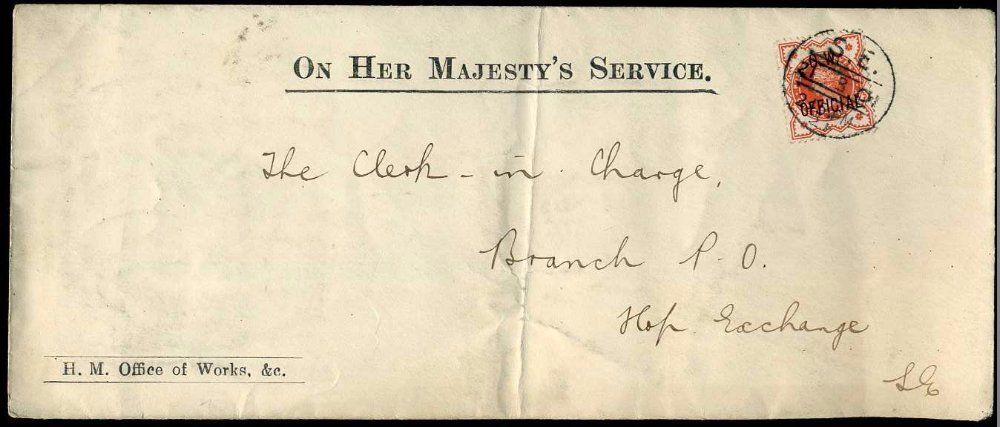 ON HER MAJESTY'S SERVICE.
OFFICIAL
The Clerk-in Charge,
Branch P.O.
Hop Exchange
S E
H. M. Office of Works, &c.